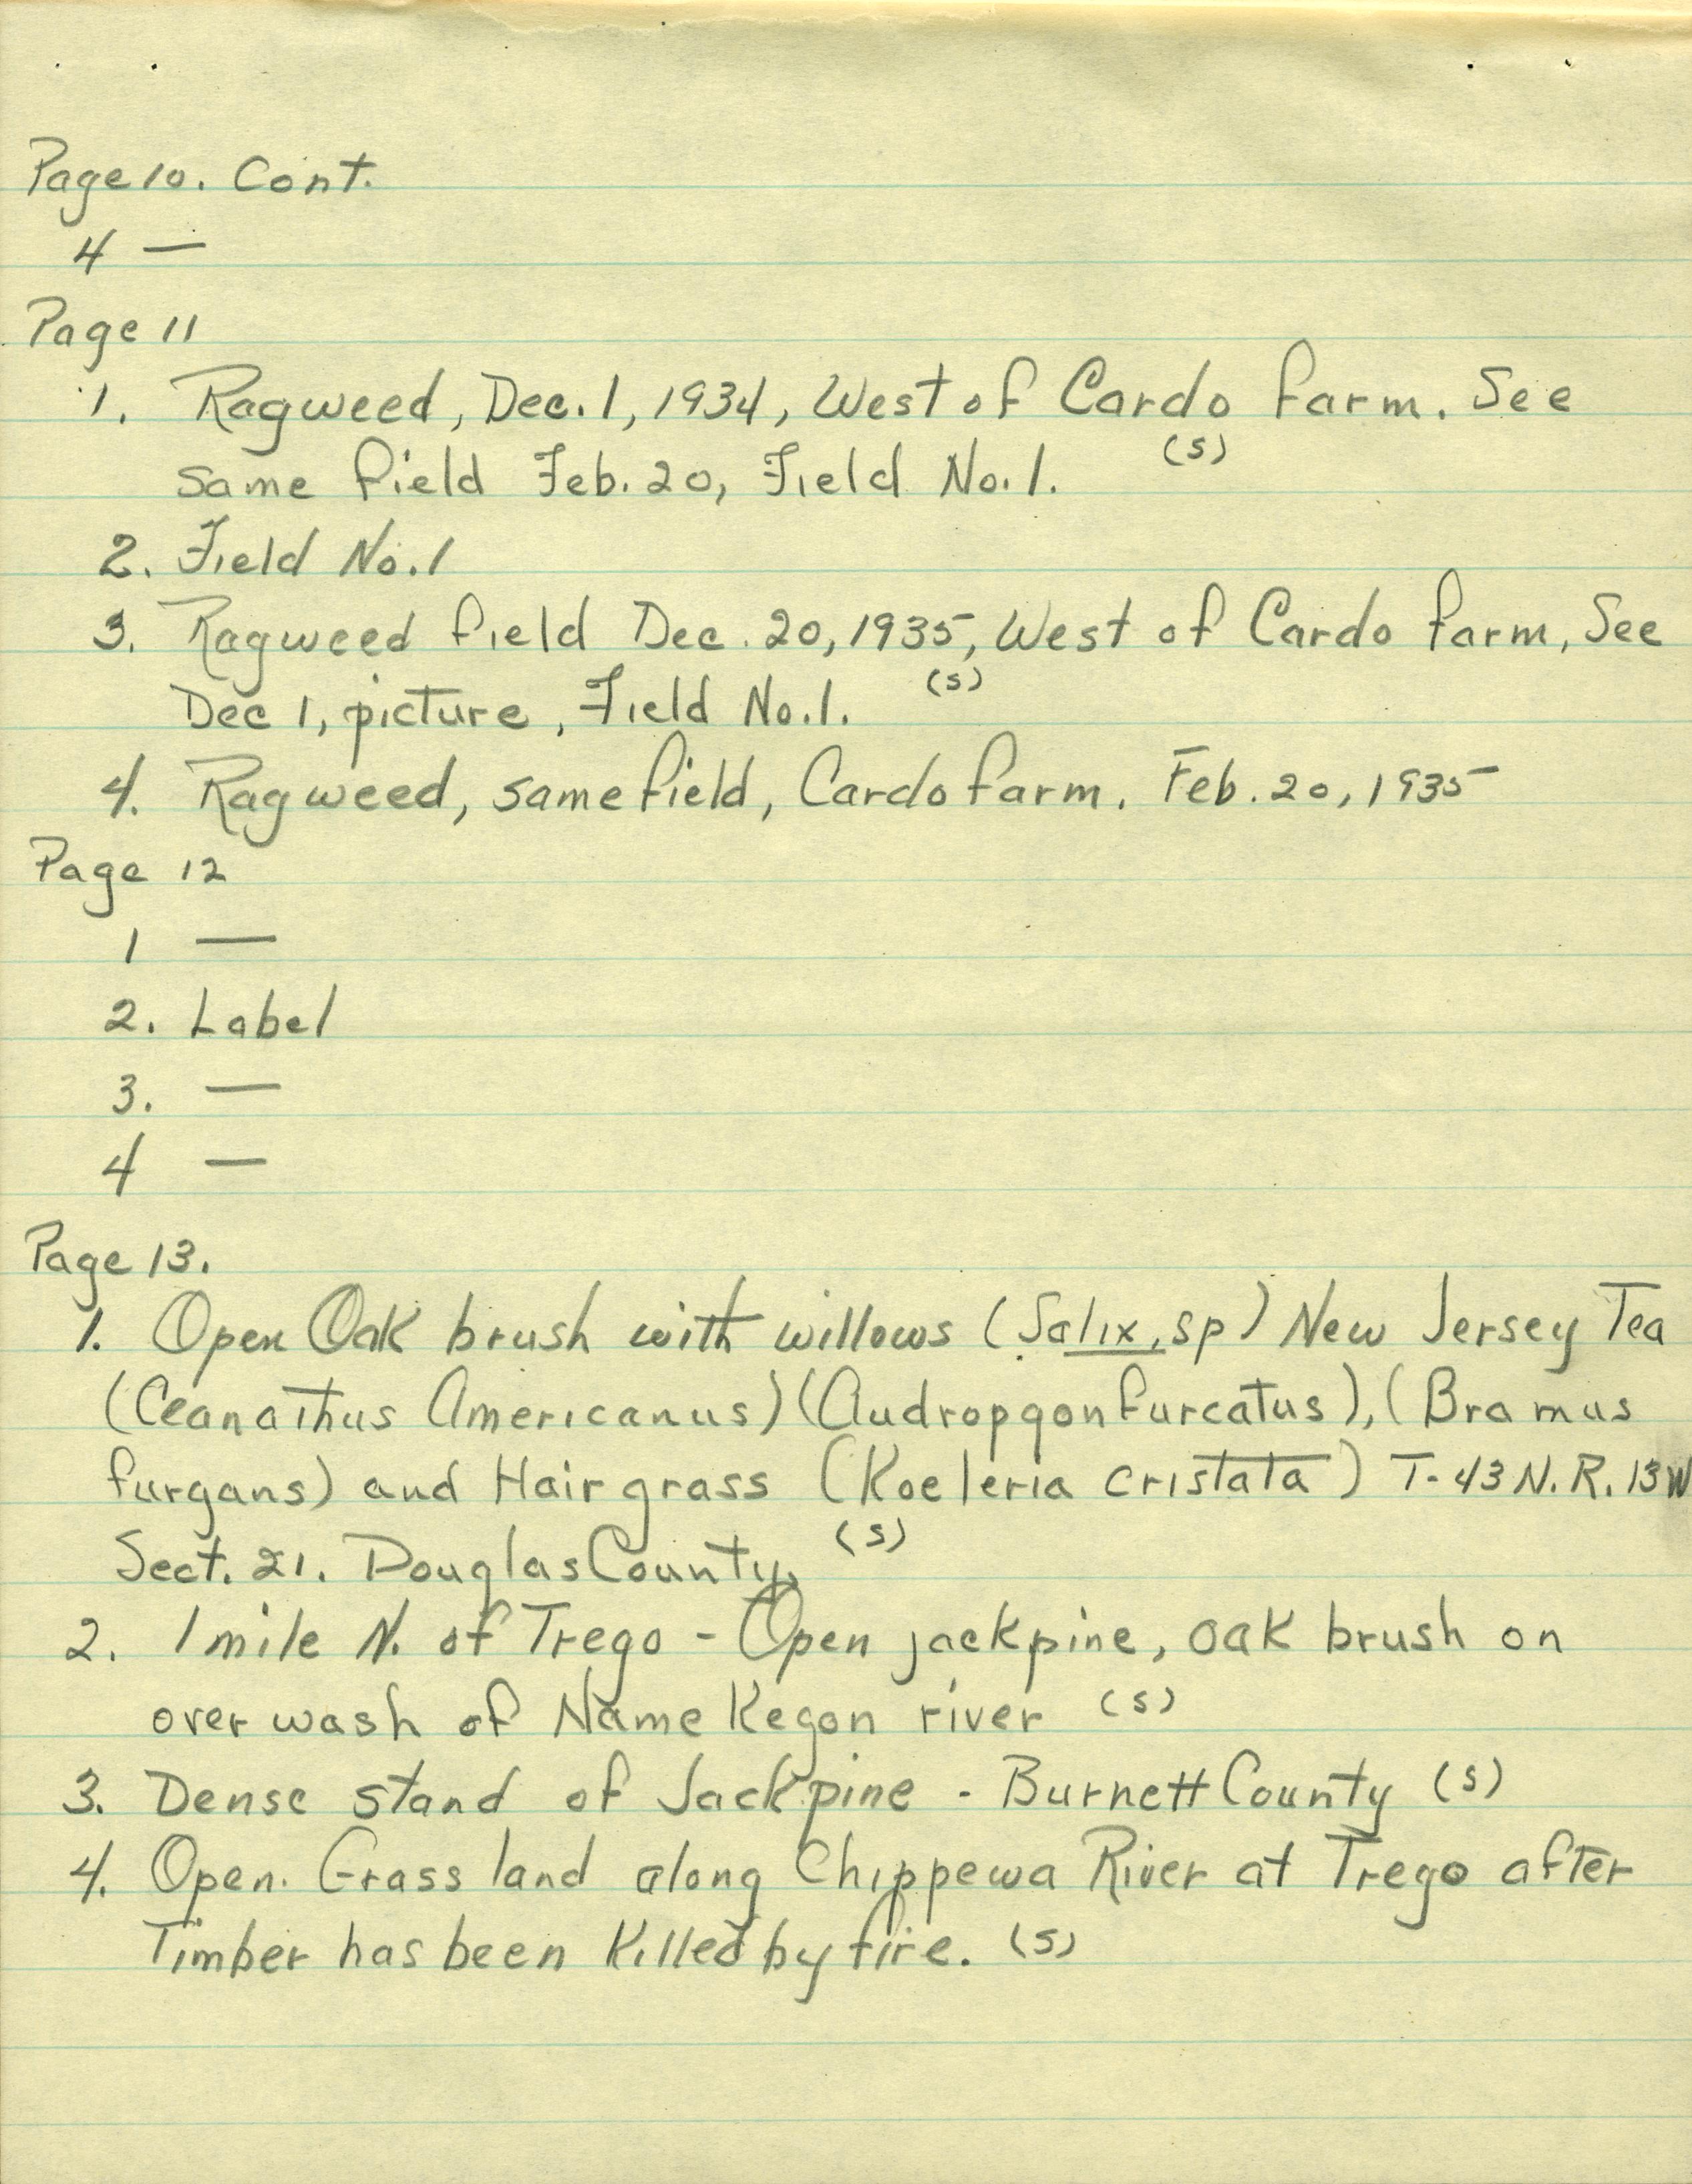 Page 10. Cont.
4 —
Page 11
1. Ragweed, Dec. 1, 1934, West of Cardo farm. See
same field Feb. 20, Field No. 1. (s)
2. Field No. 1
3. Ragweed field Dec. 20, 1935, West of Cardo farm, See
Dec 1, picture, Field No. 1. (s)
4. Ragweed, same field, Cardo farm. Feb. 20, 1935
Page 12
1 —
2. Label
3. —
4 —
Page 13.
1. Open Oak brush with willows (Salix, sp) New Jersey Tea
(Ceanathus Americanus) (Audropqon furcatus), (Bramus
furgans) and Hair grass (Koeleria cristata) T-43 N. R. 13W
Sect. 21. Douglas County. (s)
2. 1 mile N. of Trego - Open jackpine, oak brush on
over wash of Name Kegon river (s)
3. Dense stand of Jack pine - Burnett County (s)
4. Open. Grass land along Chippewa River at Trego after
Timber has been killed by fire. (s)